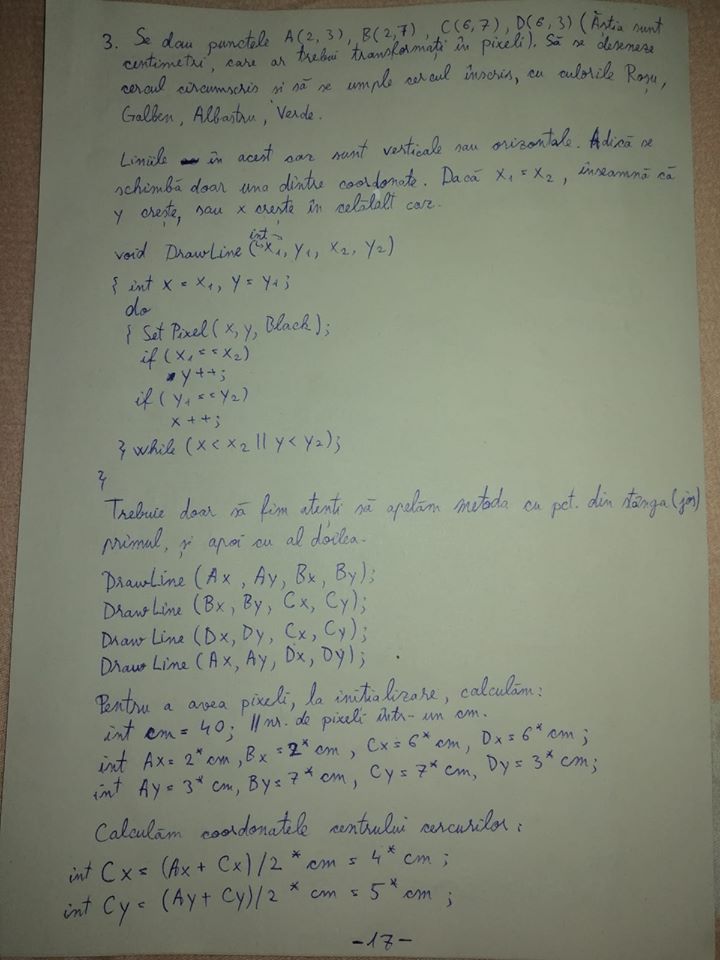 3. Se dau punctele A(2,3), B(2,7), C(6,7), D(6,3) (Ăstia sunt
centimetri, care ar trebui transformați în pixeli). Să se deseneze
cercul circumscris si să se umple cercul înscris, cu culorile Roșu,
Galben, Albastru, Verde.
Liniile în acest caz sunt verticale sau orizontale. Adică se
schimbă doar una dintre coordonate. Dacă x1 = x2, înseamnă că
y crește, sau x crește în celălalt caz.
void DrawLine (int x1, y1, x2, y2)
{ int x = x1, y = y1;
do
{ Set Pixel (x, y, Black);
if (x1 == x2)
y++;
if (y1 == y2)
x++;
} while (x < x2 || y < y2);
}
Trebuie doar să fim atenți să apelăm metoda cu pct. din stânga (jos)
primul, și apoi cu al doilea.
DrawLine (Ax, Ay, Bx, By);
DrawLine (Bx, By, Cx, Cy);
Draw Line (Dx, Dy, Cx, Cy);
Draw Line (Ax, Ay, Dx, Dy);
Pentru a avea pixeli, la inițializare, calculăm:
int cm = 40; // nr. de pixeli într-un cm.
int Ax = 2 * cm, Bx = 2 * cm, Cx = 6 * cm, Dx = 6 * cm;
int Ay = 3 * cm, By = 7 * cm, Cy = 7 * cm, Dy = 3 * cm;
Calculăm coordonatele centrului cercurilor:
int Cx = (Ax + Cx) / 2 * cm = 4 * cm;
int Cy = (Ay + Cy) / 2 * cm = 5 * cm;
-17-